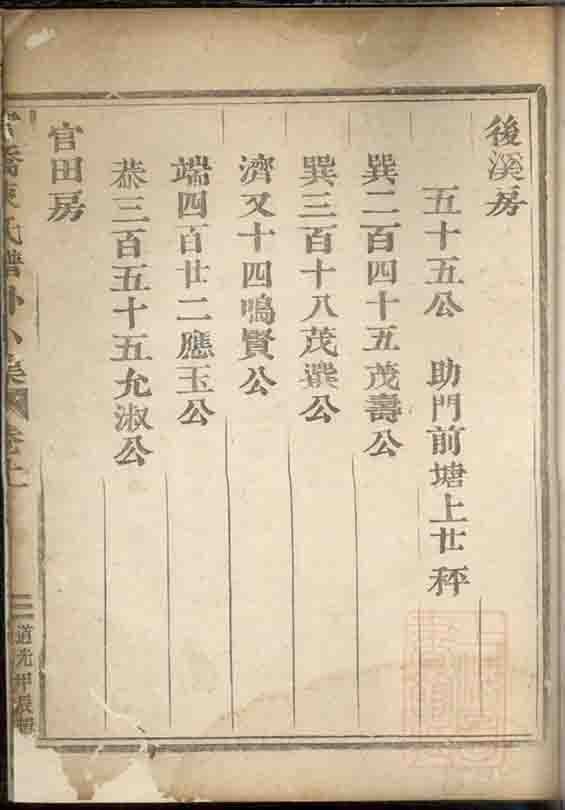 後溪房
五十五公　助門前塘上廿秤
巽二百四十五茂壽公
巽三百十八茂選公
濟又十四鳴賢公
端四百廿二應玉公
恭三百五十五允淑公
官田房
橋東氏譜外八集 卷十一
三 道光甲辰